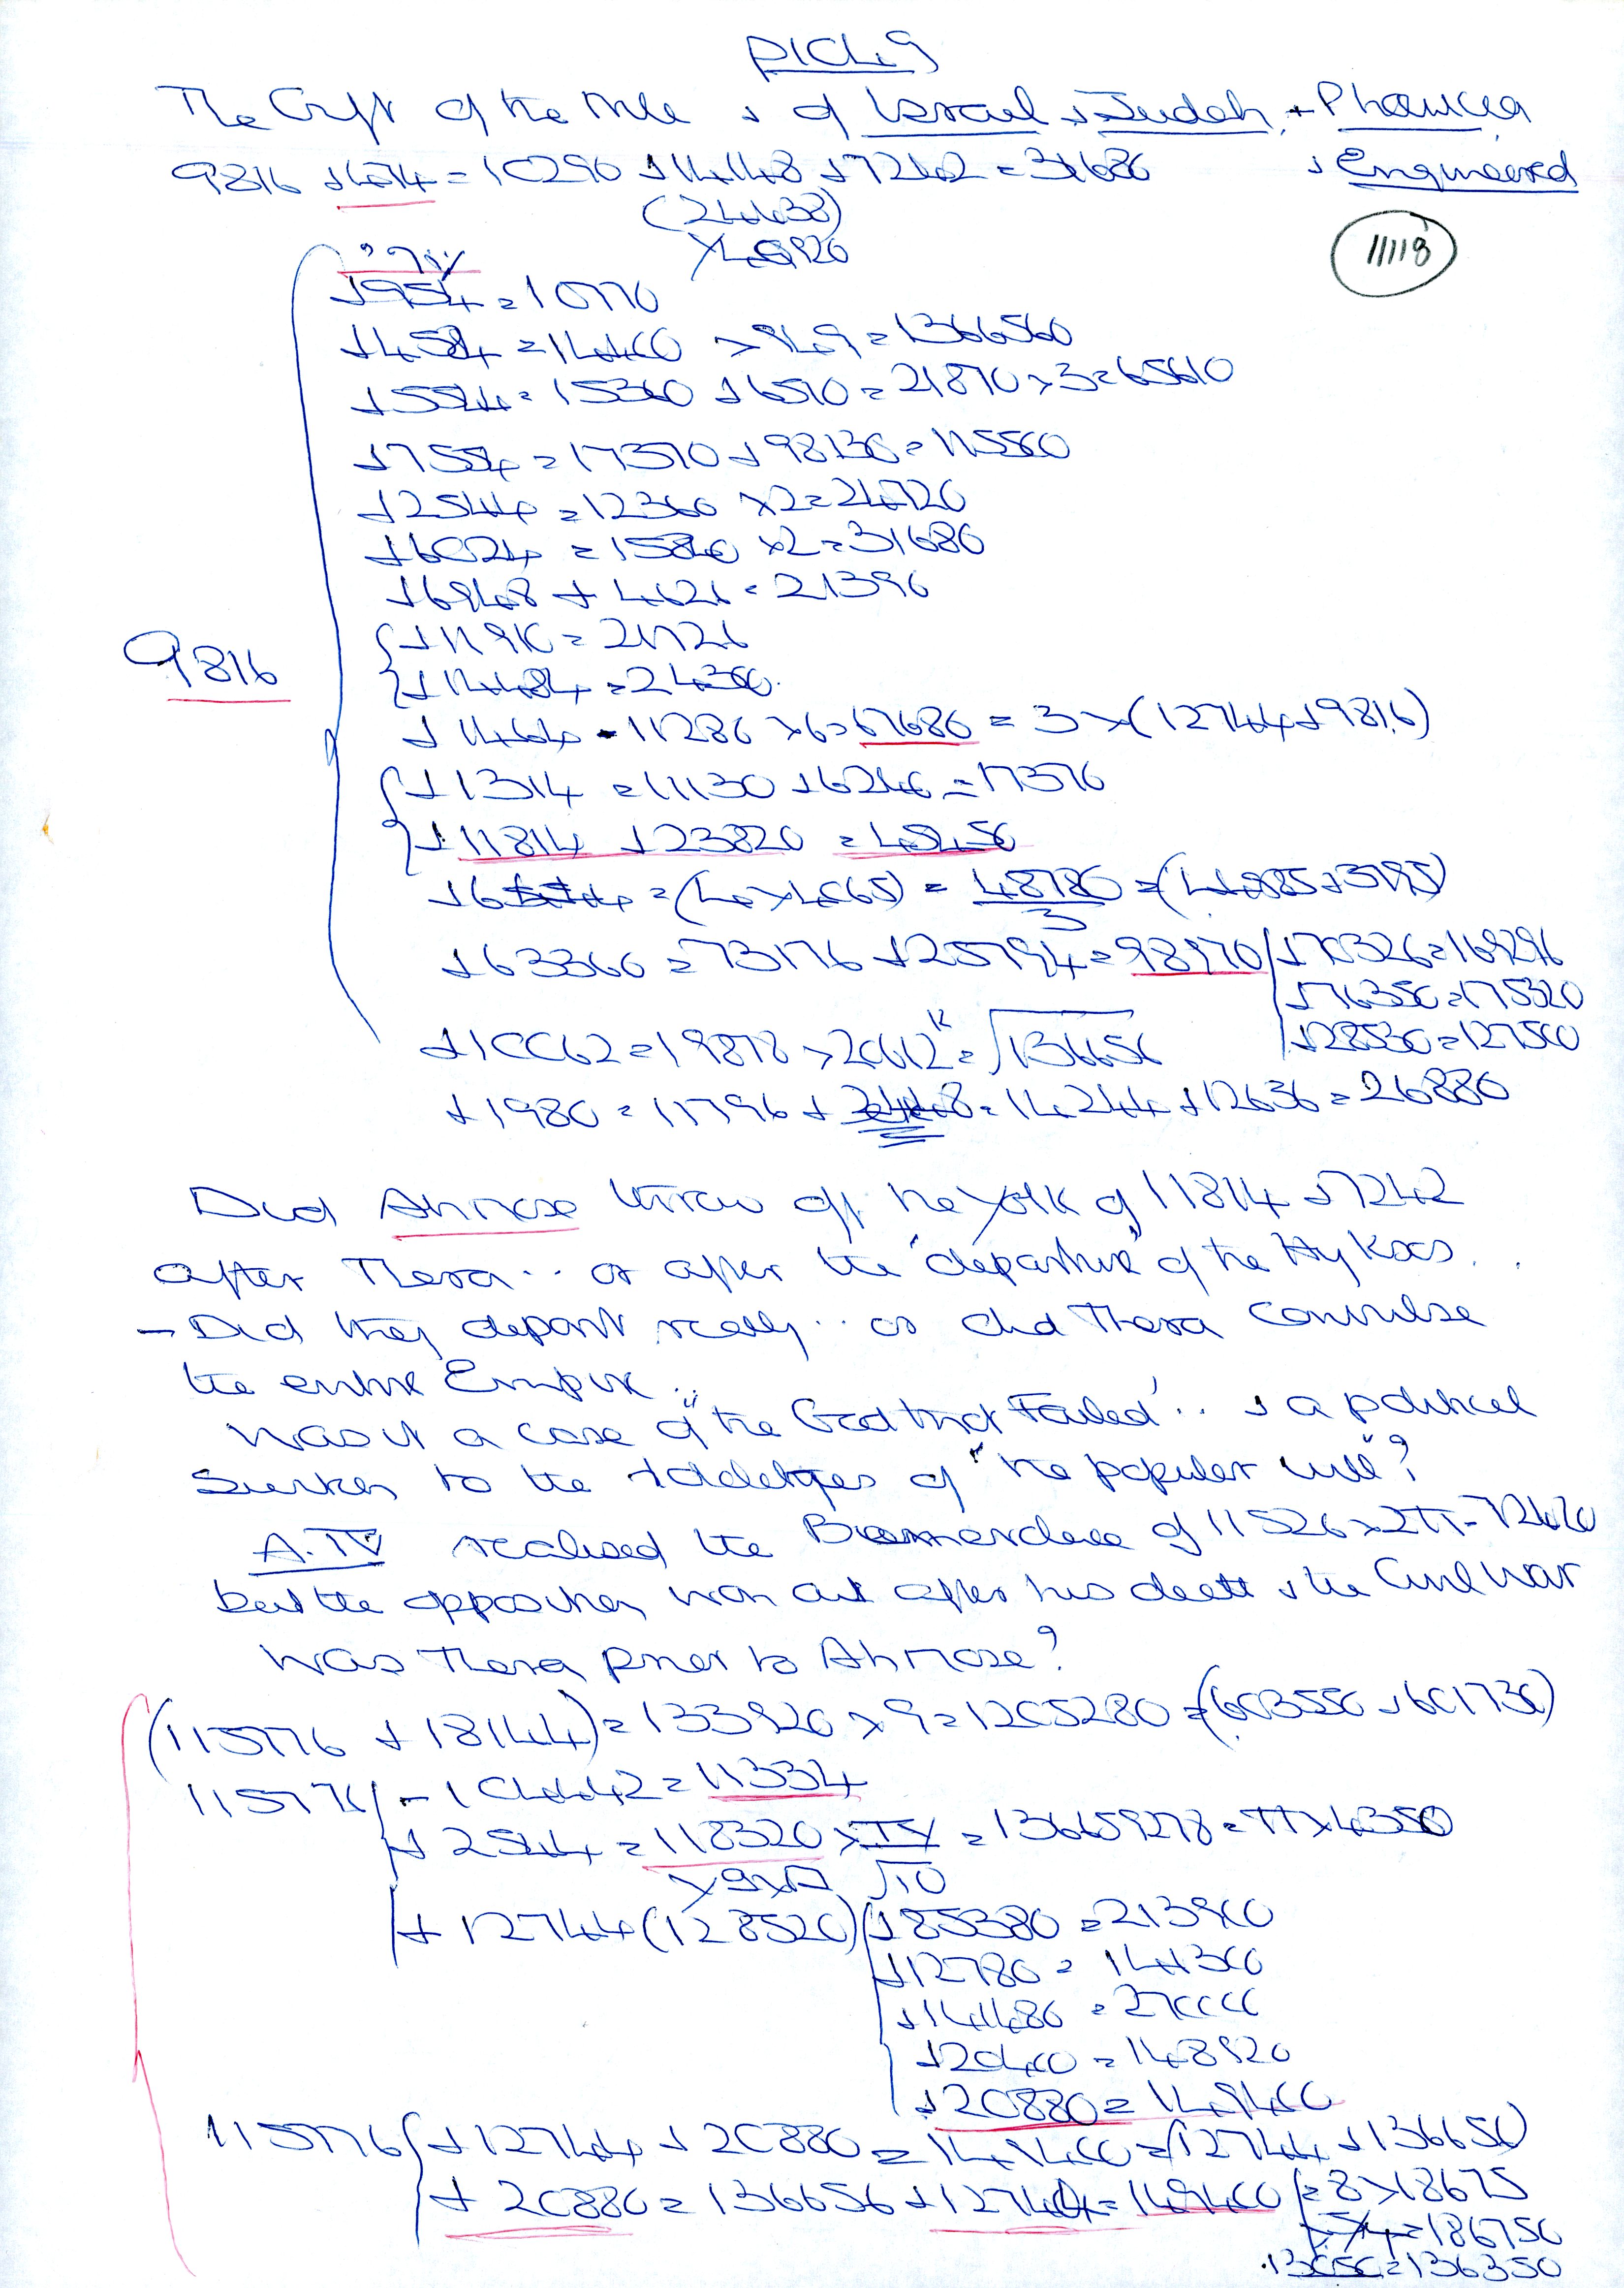 The Gift of the Nile & of Israel & Judah, + Phoenicia
9816 + 474 = 10290 + 14148 + 7242 = 31680 & Engineered
(24438)
11118
+954 = 10770
+4584 = 14400 × 949 = 1366560
+5544 = 15360 + 6510 = 21870 × 3 = 65610
+7554 = 17370 + 98136 = 115560
+2544 = 12360 × 2 = 24720
+6024 = 15840 × 2 = 31680
+6948 + 4626 = 21390
9816
+11910 = 21726
+14484 = 24300
+1464 = 11280 × 6 = 67680 = 3 × (12744 + 9816)
+1314 = 11130 + 6246 = 17376
+11814 + 23820 = 45450
= (4 × 4065) = 48780/3 =
+63360 = 73176 + 25794 = 98970 +70326 = 169296
+76350 = 175320
+28530 = 127500
+10062 = 19878 ×
+1980 = 11796 + 2448 = 14244 + 12636 = 26880
Did Ahmose throw off the yolk of 11814 + 7242
after Thera .. or after the "departure" of the Hyksos ..
– Did they depart really .. or did Thera convulse
the entire Empire ..
Was it a case of "the God that Failed" .. & a political
to the of "the popular will"?
A. IV realised the of 11526 × 2π =
but the opposition won out after his death & the Civil War
Was Thera prior to Ahmose?
(115776 + 18144) = 133920 × 9 = 1205280 = (603550 + 601730)
115776 - 104442 = 11334
+ 2544 = 118320 × = 136659278 = π × 4350
+ 12744 (128520) +85380 = 213900
+12780 = 141300
= 270000
+20400 = 148920
+20880 = 149400
115776 + 12744 + 20880 = 149400 = (12744 + 136656)
+ 20880 = 136656 + 12744 = 149400 = 8 × 18675
= 186750
= 136350